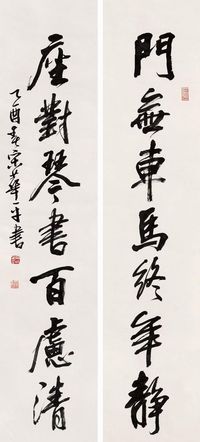 門無車馬終年靜
座對琴书百慮清
乙酉春宋華平書